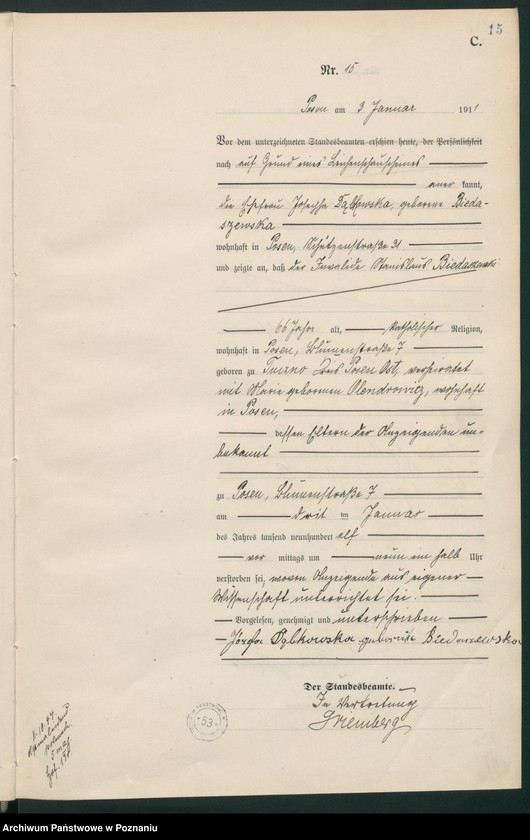 15
C.
Nr. 15
Posen am 3 Januar 1911
Vor dem unterzeichneten Standesbeamten erschien heute, der Persönlichkeit
nach auf Grund eines Leichenschauscheines
aner kannt,
die Ehefrau Josepha Dąbkowska, geborene Bieda-
szewska
wohnhaft in Posen, Schützenstraße 31
und zeigte an, daß der Invalide Stanislaus Biedaszewski
66 Jahre alt, katholischer Religion,
wohnhaft in Posen, Blumenstraße 7
geboren zu Posen Ost, verheiratet
mit Marie geborenen Olendrowicz, wohnhaft
in Posen,
dessen Eltern der Anzeigenden un-
bekannt
zu Posen, Blumenstraße 7
am drit ten Januar
des Jahres tausend neunhundert elf
vor mittags um neun ein halb Uhr
verstorben sei, wovon Anzeigende aus eigener
Wissenschaft unterrichtet sei.
Vorgelesen, genehmigt und unterschrieben
Józefa Dąbkowska geborene Biedaszewska
Der Standesbeamte.
In Vertretung
53
Archiwum Państwowe w Poznaniu